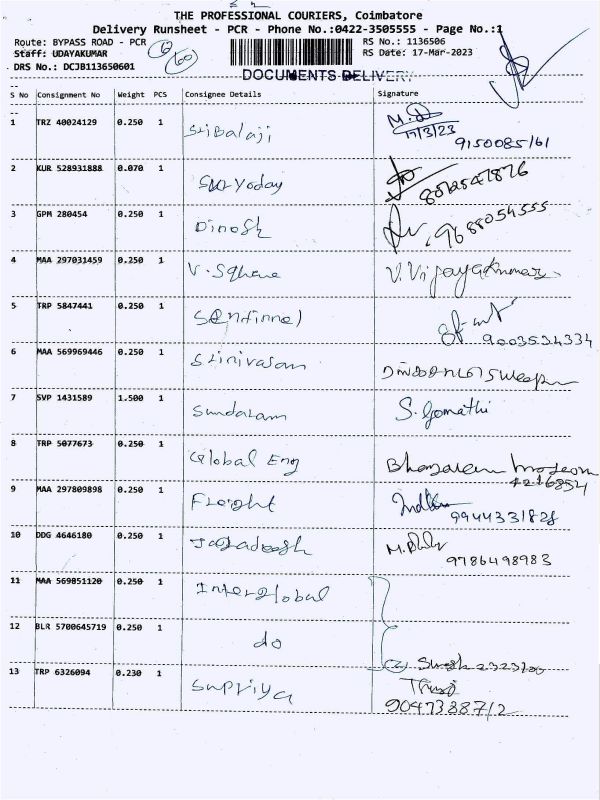 THE PROFESSIONAL COURIERS, Coimbatore
Delivery Runsheet - PCR - Phone No.:0422-3505555 - Page No.:1
Route: BYPASS ROAD - PCR RS No.: 1136506
Staff: UDAYAKUMAR RS Date: 17-Mar-2023
DRS No.: DCJB113650601
60
DOCUMENTS DELIVERY
S No Consignment No Weight PCS Consignee Details Signature
1 TRZ 40024129 0.250 1 Sribalaji
17/3/23
9150085161
2 KUR 528931888 0.070 1
3 GPM 280454 0.250 1 Dinosh 9688054555
4 MAA 297031459 0.250 1 V. Sqhere V. Vijayakumar
5 TRP 5847441 0.250 1 Sentinnel
9003534334
6 MAA 569969446 0.250 1 Srinivasan
7 SVP 1431589 1.500 1 Sundaram S. Gomathi
8 TRP 5077673 0.250 1 Global Eng
4216854
9 MAA 297809898 0.250 1 Freight
9944331828
10 DDG 4646180 0.250 1 Jagadeesh
9786498983
11 MAA 569851120 0.250 1 Interglobal
12 BLR 5700645719 0.250 1 do
2
13 TRP 6326094 0.230 1 Supriya
9047388712